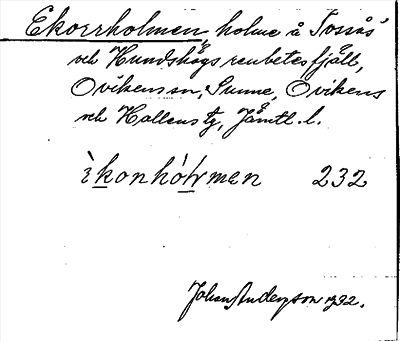 Ekorrholmen, holme å Tossås'
och Hundshögs renbetesfjäll,
Ovikens sn, Sunne, Ovikens
och Hallens tg, Jämtl. l.
ìkonhólmen 232
Johan Anderson 1932.